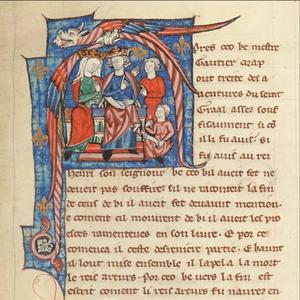 APres ceo ke mestre
Gautier map
out treite des a
uentures du seint
Graal assez souf
fisaument si co
il li fu auis. Si
fu auis au rei
henri son seignour ke ceo kil aueit fet ne
deueit pas souffire. sil ne raconteit la fin
de ceus de ki il aueit fet deuant mention
e coment cil morurent de ki il auet les pro
esces ramenteues en son liure. E por ce
comenca il ceste derreniere partie. E kaunt
il lout mise ensemble il lapela la mort
le rei arturs. Por ceo ke uers la fin est
escrit coment li reis arturs fu naurez en